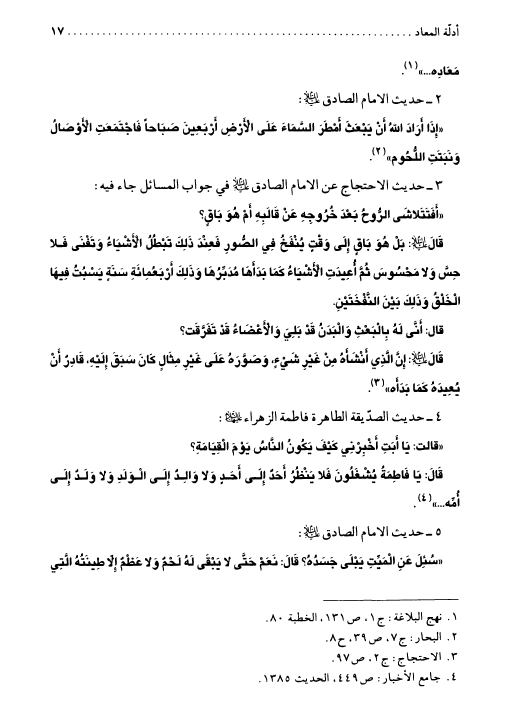 أدلّة المعاد ............................................................ ١٧
مَعَادِه...»(١).
٢ ـ حديث الامام الصادق ﷺ :
«إذَا أَرَادَ اللهُ أَنْ يَبْعَثَ أَمْطَرَ السَّمَاءَ عَلَى الْأَرْضِ أَرْبَعِينَ صَبَاحاً فَاجْتَمَعَتِ الْأَوْصَالُ
وَنَبَتَتِ اللُّحُوم»(٢).
٣ ـ حديث الاحتجاج عن الامام الصادق في جواب المسائل جاء فيه :
«أَفَتَتَلاشَى الرُّوحُ بَعْدَ خُرُوجِهِ عَنْ قَالَبِهِ أَمْ هُوَ بَاقٍ؟
قَالَ: بَلْ هُوَ بَاقٍ إِلَى وَقْتٍ يُنْفَخُ فِي الصُّورِ فَعِنْدَ ذَلِكَ تَبْطُلُ الْأَشْيَاءُ وَتَفْنَى فَلا
حِسَّ وَلا مَحْسُوسَ ثُمَّ أُعِيدَتِ الْأَشْيَاءُ كَمَا بَدَأَهَا مُدَبِّرُهَا وَذَلِكَ أَرْبَعُمِائَةِ سَنَةٍ يَسْبُتُ فِيهَا
الْخَلْقُ وَذَلِكَ بَيْنَ النَّفْخَتَيْنِ.
قال: أَنَّى لَهُ بِالْبَعْثِ وَالْبَدَنُ قَدْ بَلِيَ وَالْأَعْضَاءُ قَدْ تَفَرَّقَت؟
قَالَ: إِنَّ الَّذِي أَنْشَأَهُ مِنْ غَيْرِ شَيْءٍ، وَصَوَّرَهُ عَلَى غَيْرِ مِثَالٍ كَانَ سَبَقَ إِلَيْهِ، قَادِرُ أَنْ
يُعِيدَهُ كَمَا بَدَأَه»(٣).
٤ ـ حديث الصدّيقة الطاهرة فاطمة الزهراء :
«قالت: يَا أَبَتِ أَخْبِرْنِي كَيْفَ يَكُونُ النَّاسُ يَوْمَ الْقِيَامَةِ؟
قَالَ: يَا فَاطِمَةُ يُشْغَلُونَ فَلا يَنْظُرُ أَحَدٌ إِلَى أَحَدٍ وَلا وَالِدٌ إِلَى الْوَلَدِ وَلا وَلَدٌ إِلَى
أُمِّه...»(٤).
٥ ـ حديث الامام الصادق :
«سُئِلَ عَنِ الْمَيِّتِ يَبْلَى جَسَدُهُ؟ قَالَ: نَعَمْ حَتَّى لا يَبْقَى لَهُ لَحْمٌ وَلا عَظْمٌ إِلّا طِينَتُهُ الَّتِي
١. نهج البلاغة : ج١، ص١٣١، الخطبة ٨٠.
٢. البحار : ج٧، ص٣٩، ح٨.
٣. الاحتجاج : ج٢، ص٩٧.
٤. جامع الأخبار : ص٤٤٩، الحديث ١٣٨٥.